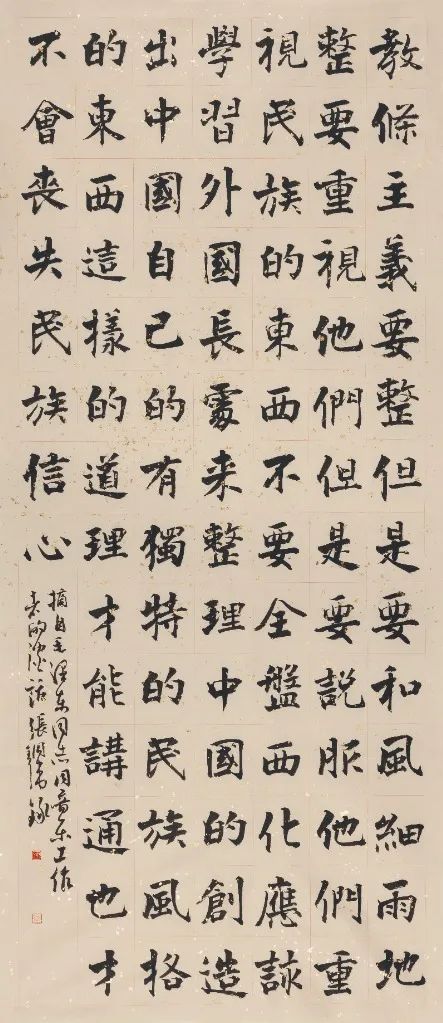 教條主義要整但是要和風細雨地
整要重視他們但是要說服他們重
視民族的東西不要全盤西化應該
學習外國長處来整理中國的創造
出中國自己的有獨特的民族風格
的東西這樣的道理才能講通也才
不會喪失民族信心
摘自毛澤東同志同音樂工作
者的談話 張 錄